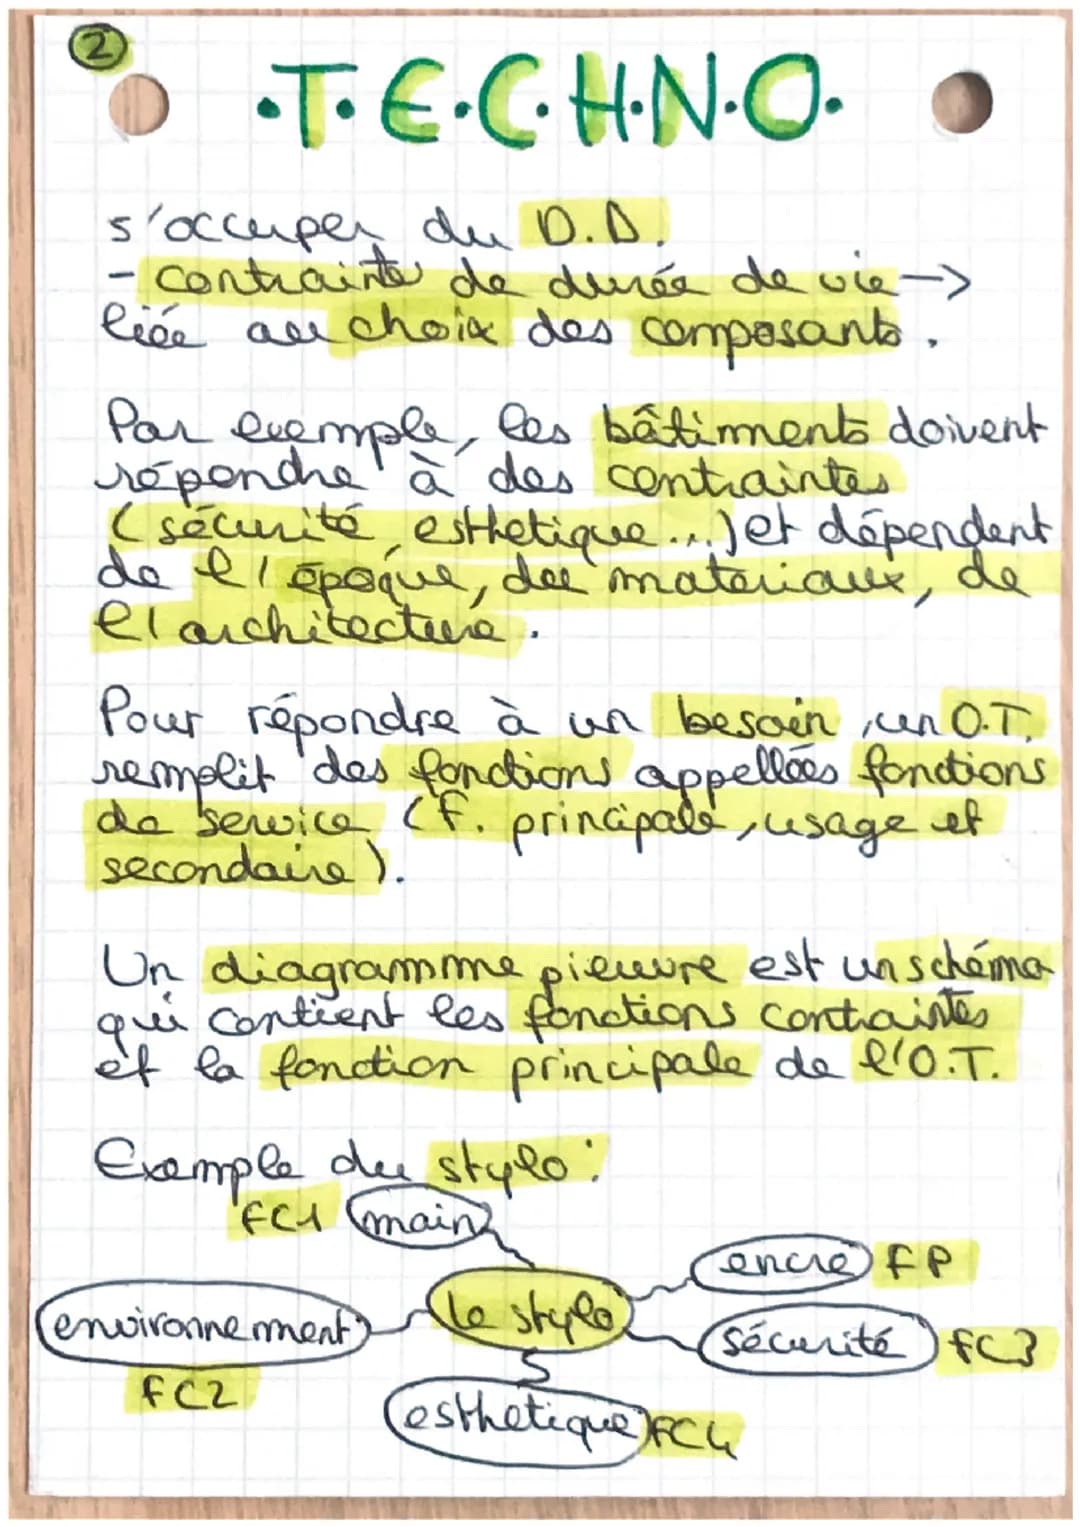 2
.T.E.C.H.N.O.
s'occuper du D.D.
- contrainte de durée de vie ->
liée au choix des composants.
Par exemple, les bâtiments doivent
répondre à des contraintes
(sécurité, esthetique...) et dépendent
de l'époque, des matériaux, de
l'architecture.
Pour répondre à un besoin, un O.T.
remplit des fonctions appellées fonctions
de service (f. principale, usage et
secondaire).
Un diagramme pieuvre est un schéma
qui contient les fonctions contraintes
et la fonction principale de l'O.T.
Exemple du stylo :
FC1 main
encre FP
le stylo
environnement
sécurité FC3
FC2
esthetique FC4